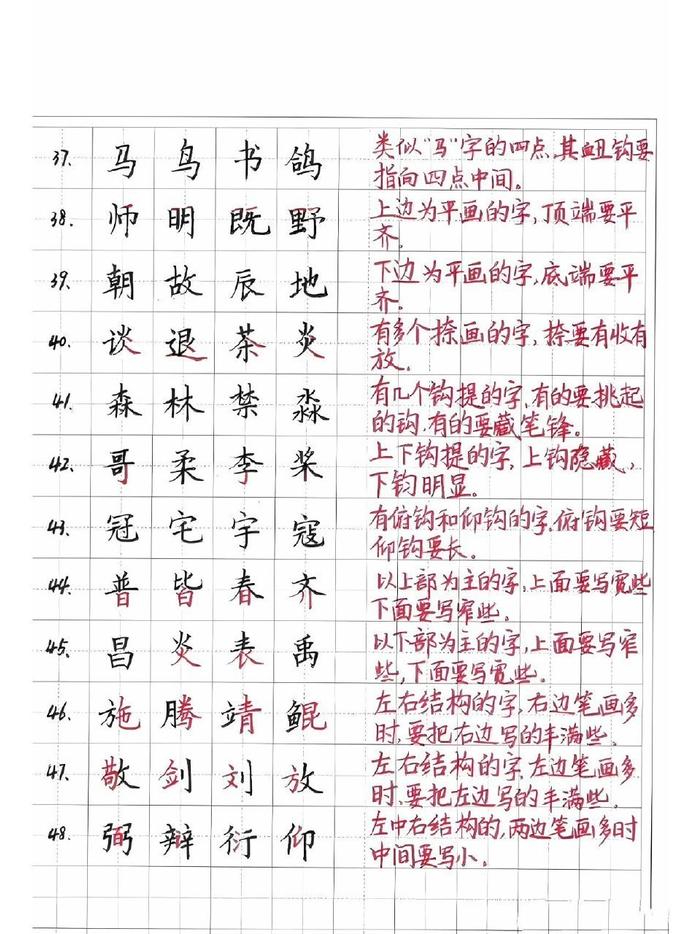 37. 马 鸟 书 鸽 类似"马"字的四点,其曲钩要
指向四点中间。
38. 师 明 既 野 上边为平画的字,顶端要平
齐。
39. 朝 故 辰 地 下边为平画的字,底端要平
齐.
40. 谈 退 茶 炎 有多个捺画的字,捺要有收有
放.
41. 森 林 禁 淼 有几个钩提的字,有的要挑起
的钩.有的要藏笔锋。
42. 哥 柔 李 桨 上下钩提的字,上钩隐藏,
下钩明显。
43. 冠 宅 宇 寇 有俯钩和仰钩的字,俯钩要短
仰钩要长。
44. 普 皆 春 齐 以上部为主的字,上面要写宽些
下面要写窄些。
45. 昌 炎 表 禹 以下部为主的字,上面要写窄
些,下面要写宽些。
46. 施 腾 靖 鲲 左右结构的字,右边笔画多
时,要把右边写的丰满些.
47. 敬 剑 刘 放 左右结构的字,左边笔画多
时,要把左边写的丰满些.
48. 弼 辩 衍 仰 左中右结构的,两边笔画多时
中间要写小。